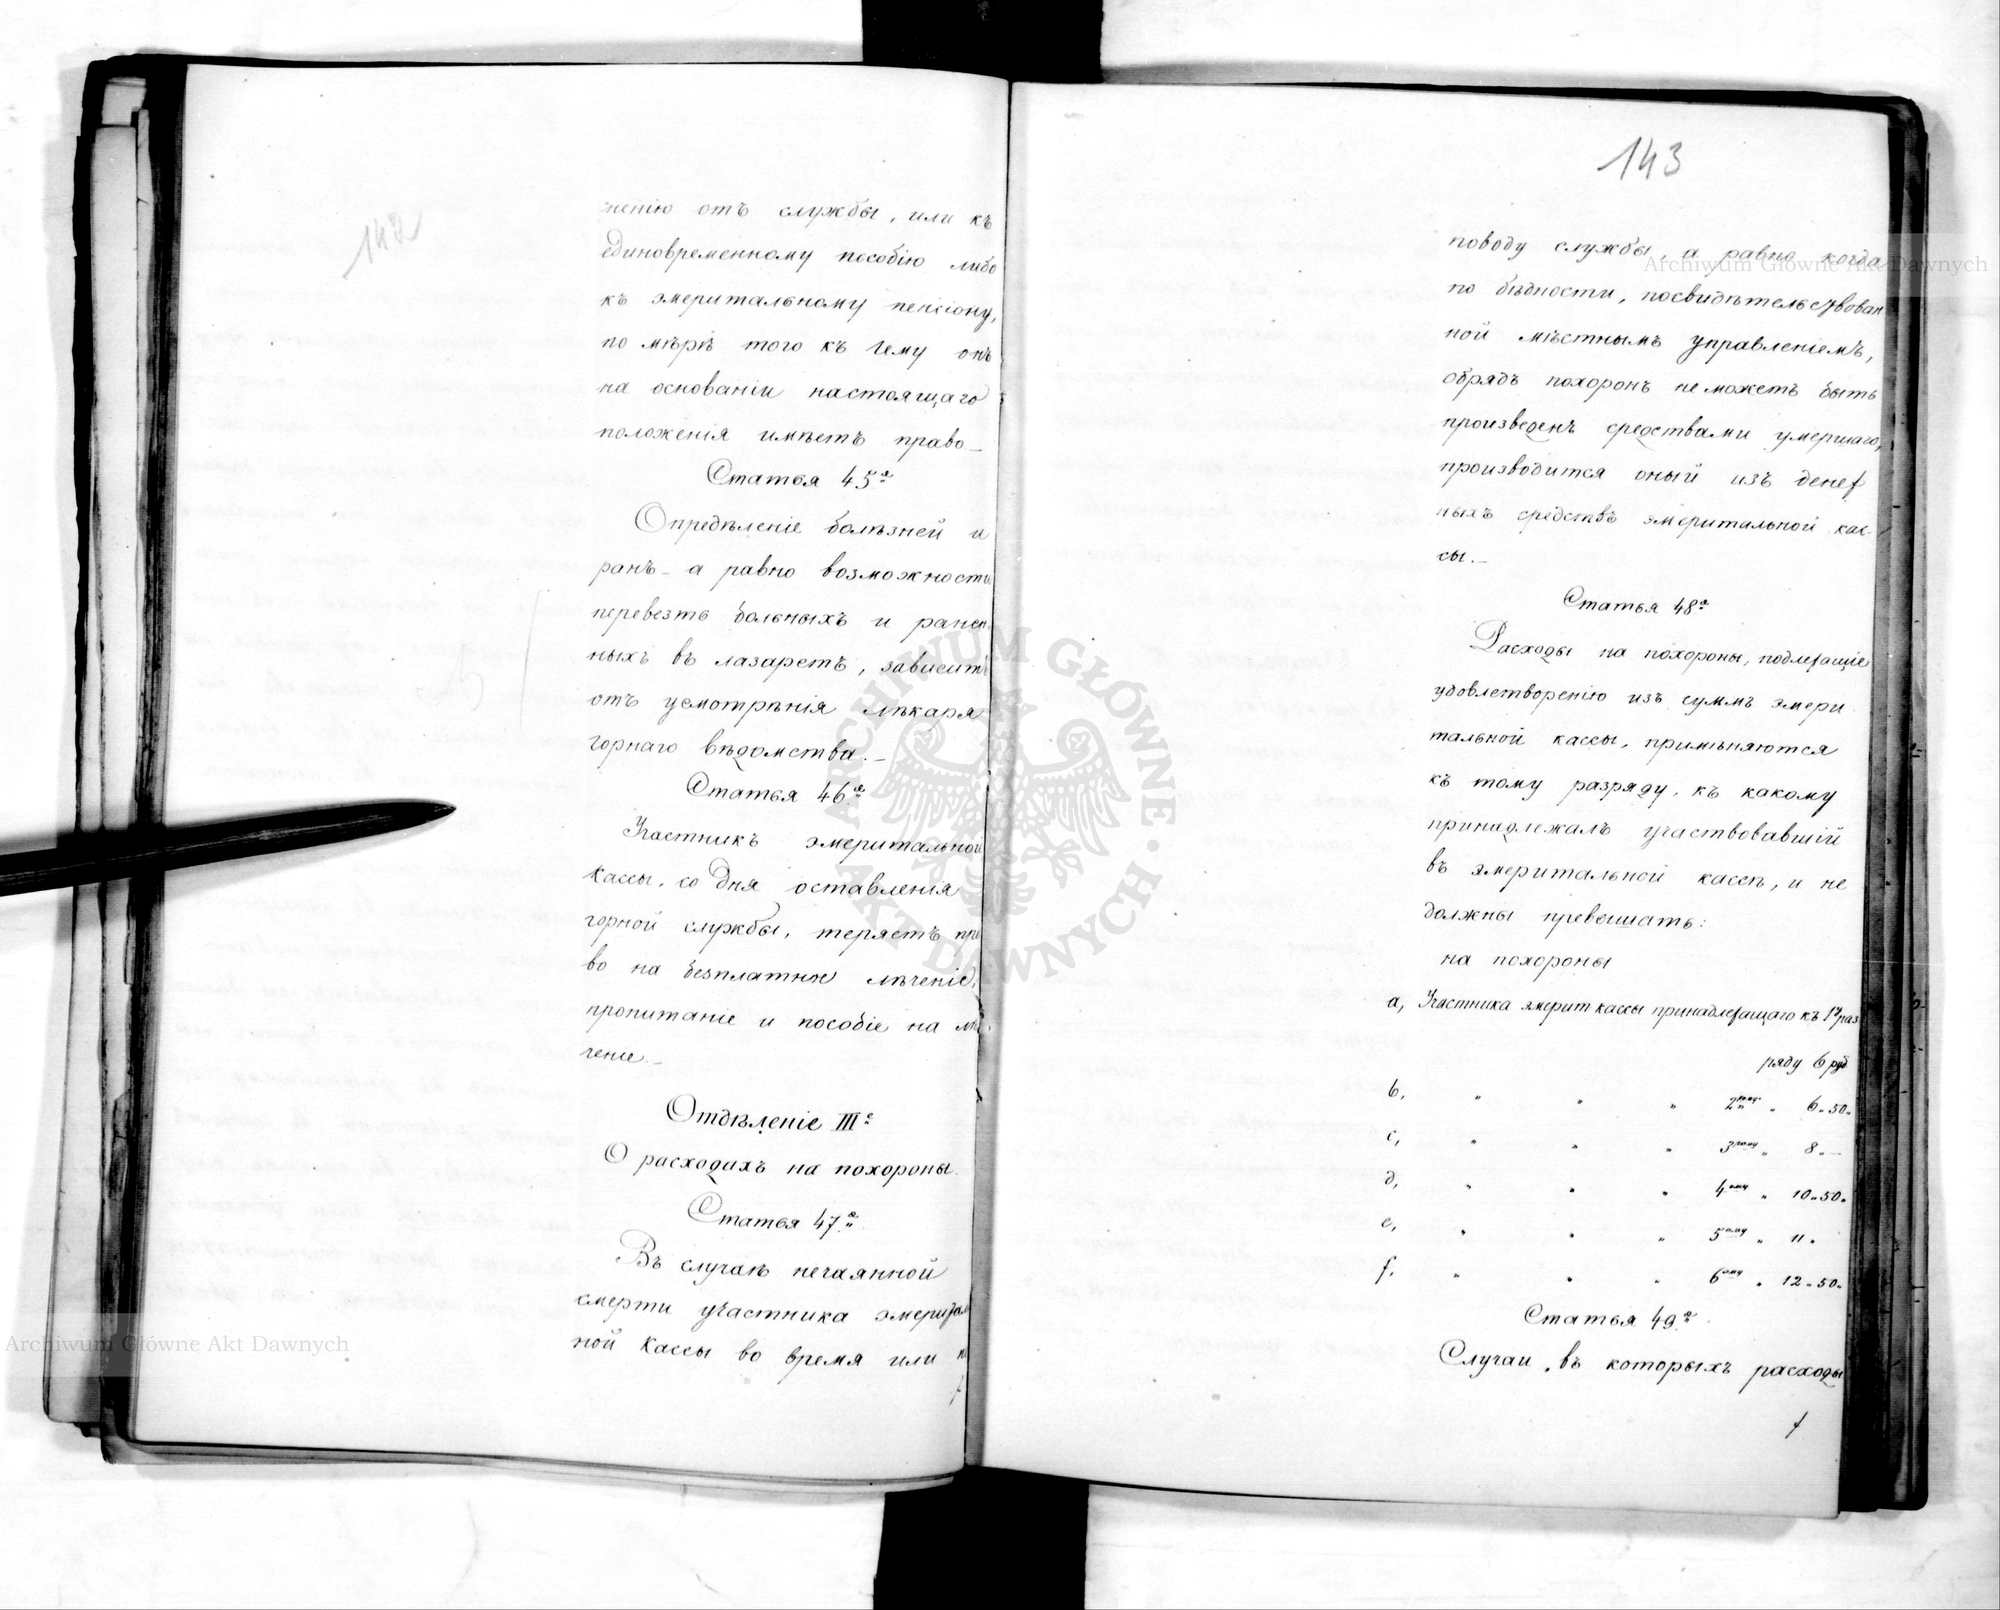 142
ченію отъ службы, или къ
единовременному пособію либо
къ эмеритальному пенсіону,
по мѣрѣ того къ чему онъ
на основаніи настоящаго
положенія имѣетъ право_
Статья 45я
Опредѣленіе болѣзней и
ранъ_ а равно возможности
перевезть больныхъ и ранен
ныхъ въ лазаретъ, зависитъ
отъ усмотрѣнія лѣкаря
горнаго вѣдомства._
Статья 46я
Участникъ эмеритальной
кассы, со дня оставленія
горной службы, теряетъ пра
во на безплатное лѣченіе,
пропитаніе и пособіе на лѣ
ченіе._
Отдѣленіе IIIе
О расходахъ на похороны.
Статья 47я
Въ случаѣ нечаянной
смерти участника эмериталь
ной кассы во время или по
143
поводу службы, а равно когда
по бѣдности, посвидѣтельствован
ной мѣстнымъ управленіемъ,
обрядъ похоронъ не можетъ быть
произведенъ средствами умершаго,
производится оный изъ денеж
ныхъ средствъ эмеритальной кас-
сы._
Статья 48я
Расходы на похороны, подлежащіе
удовлетворенію изъ суммъ эмери
тальной кассы, примѣняются
къ тому разряду, къ какому
принадлежалъ участвовавшій
въ эмеритальной кассѣ, и не
должны превышать:
на похороны
а, Участника эмерит кассы принадлежащаго къ 1му раз
ряду 6 руб
b, " " " 2рому " 6 " 50 "
c, " " " 3тему " 8 " —
d, " " " 4ому " 10 " 50 "
e, " " " 5ому " 11 "
f, " " " 6ому " 12 " 50 "
Статья 49я
Случаи, въ которыхъ расходы
Archiwum Główne Akt Dawnych
Archiwum Główne Akt Dawnych
ARCHIWUM GŁÓWNE AKT DAWNYCH